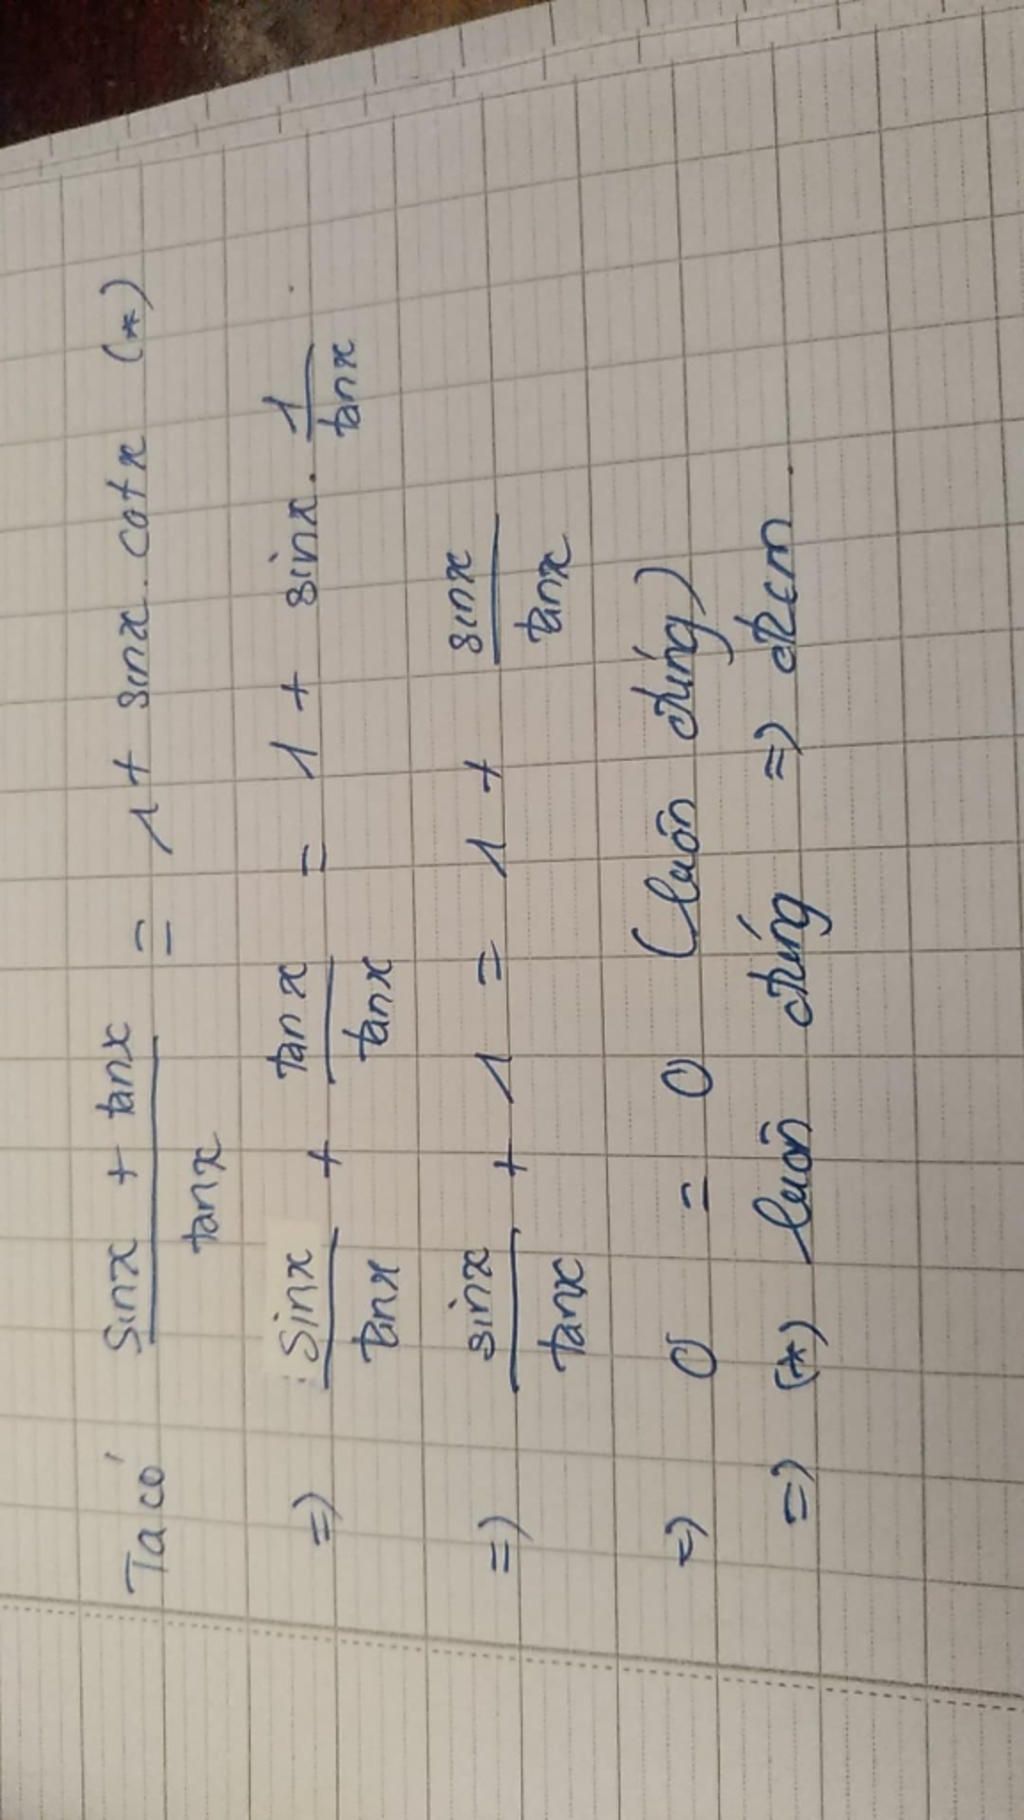 Ta có (sinx + tanx)/tanx = 1 + sinx.cotx (*)
=) sinx/tanx + tanx/tanx = 1 + sinx . 1/tanx .
=) sinx/tanx + 1 = 1 + sinx/tanx
=) 0 = 0 (luôn đúng)
=) (*) luôn đúng =) đkcm .